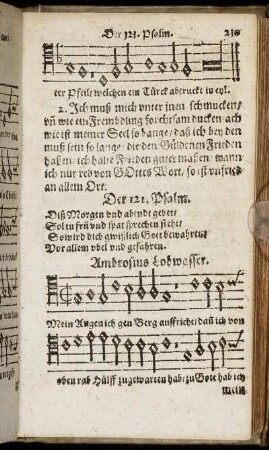 Der 121. Psalm.
ter Pfeil/ welchen ein Türck abtruckt in eyl.
2. Ich muß mich vnter jnen schmucken/
vñ wie ein Frembdling hoch ducken: ach
wie ist meiner Seel so bange/ daß ich bey den
muß sein so lange/ die den Güldenen Frieden
haßen/ ich halte Frieden guter maßen/ wann
ich nur red von GOttes Wort/ so ist vnfried
an allem Ort.
Der 121. Psalm.
Diß Morgen vnd abendt gebet/
Solt du frü vnd spat sprechen steht/
So wird dich gwißlich Gott bewahren/
Vor allem vbel vnd gefahren.
Ambrosius Lobwasser.
Mein Augen ich gen Berg auffricht/ dañ ich von
oben rab Hülff zugewarten hab/ zu Gott hab ich
mein